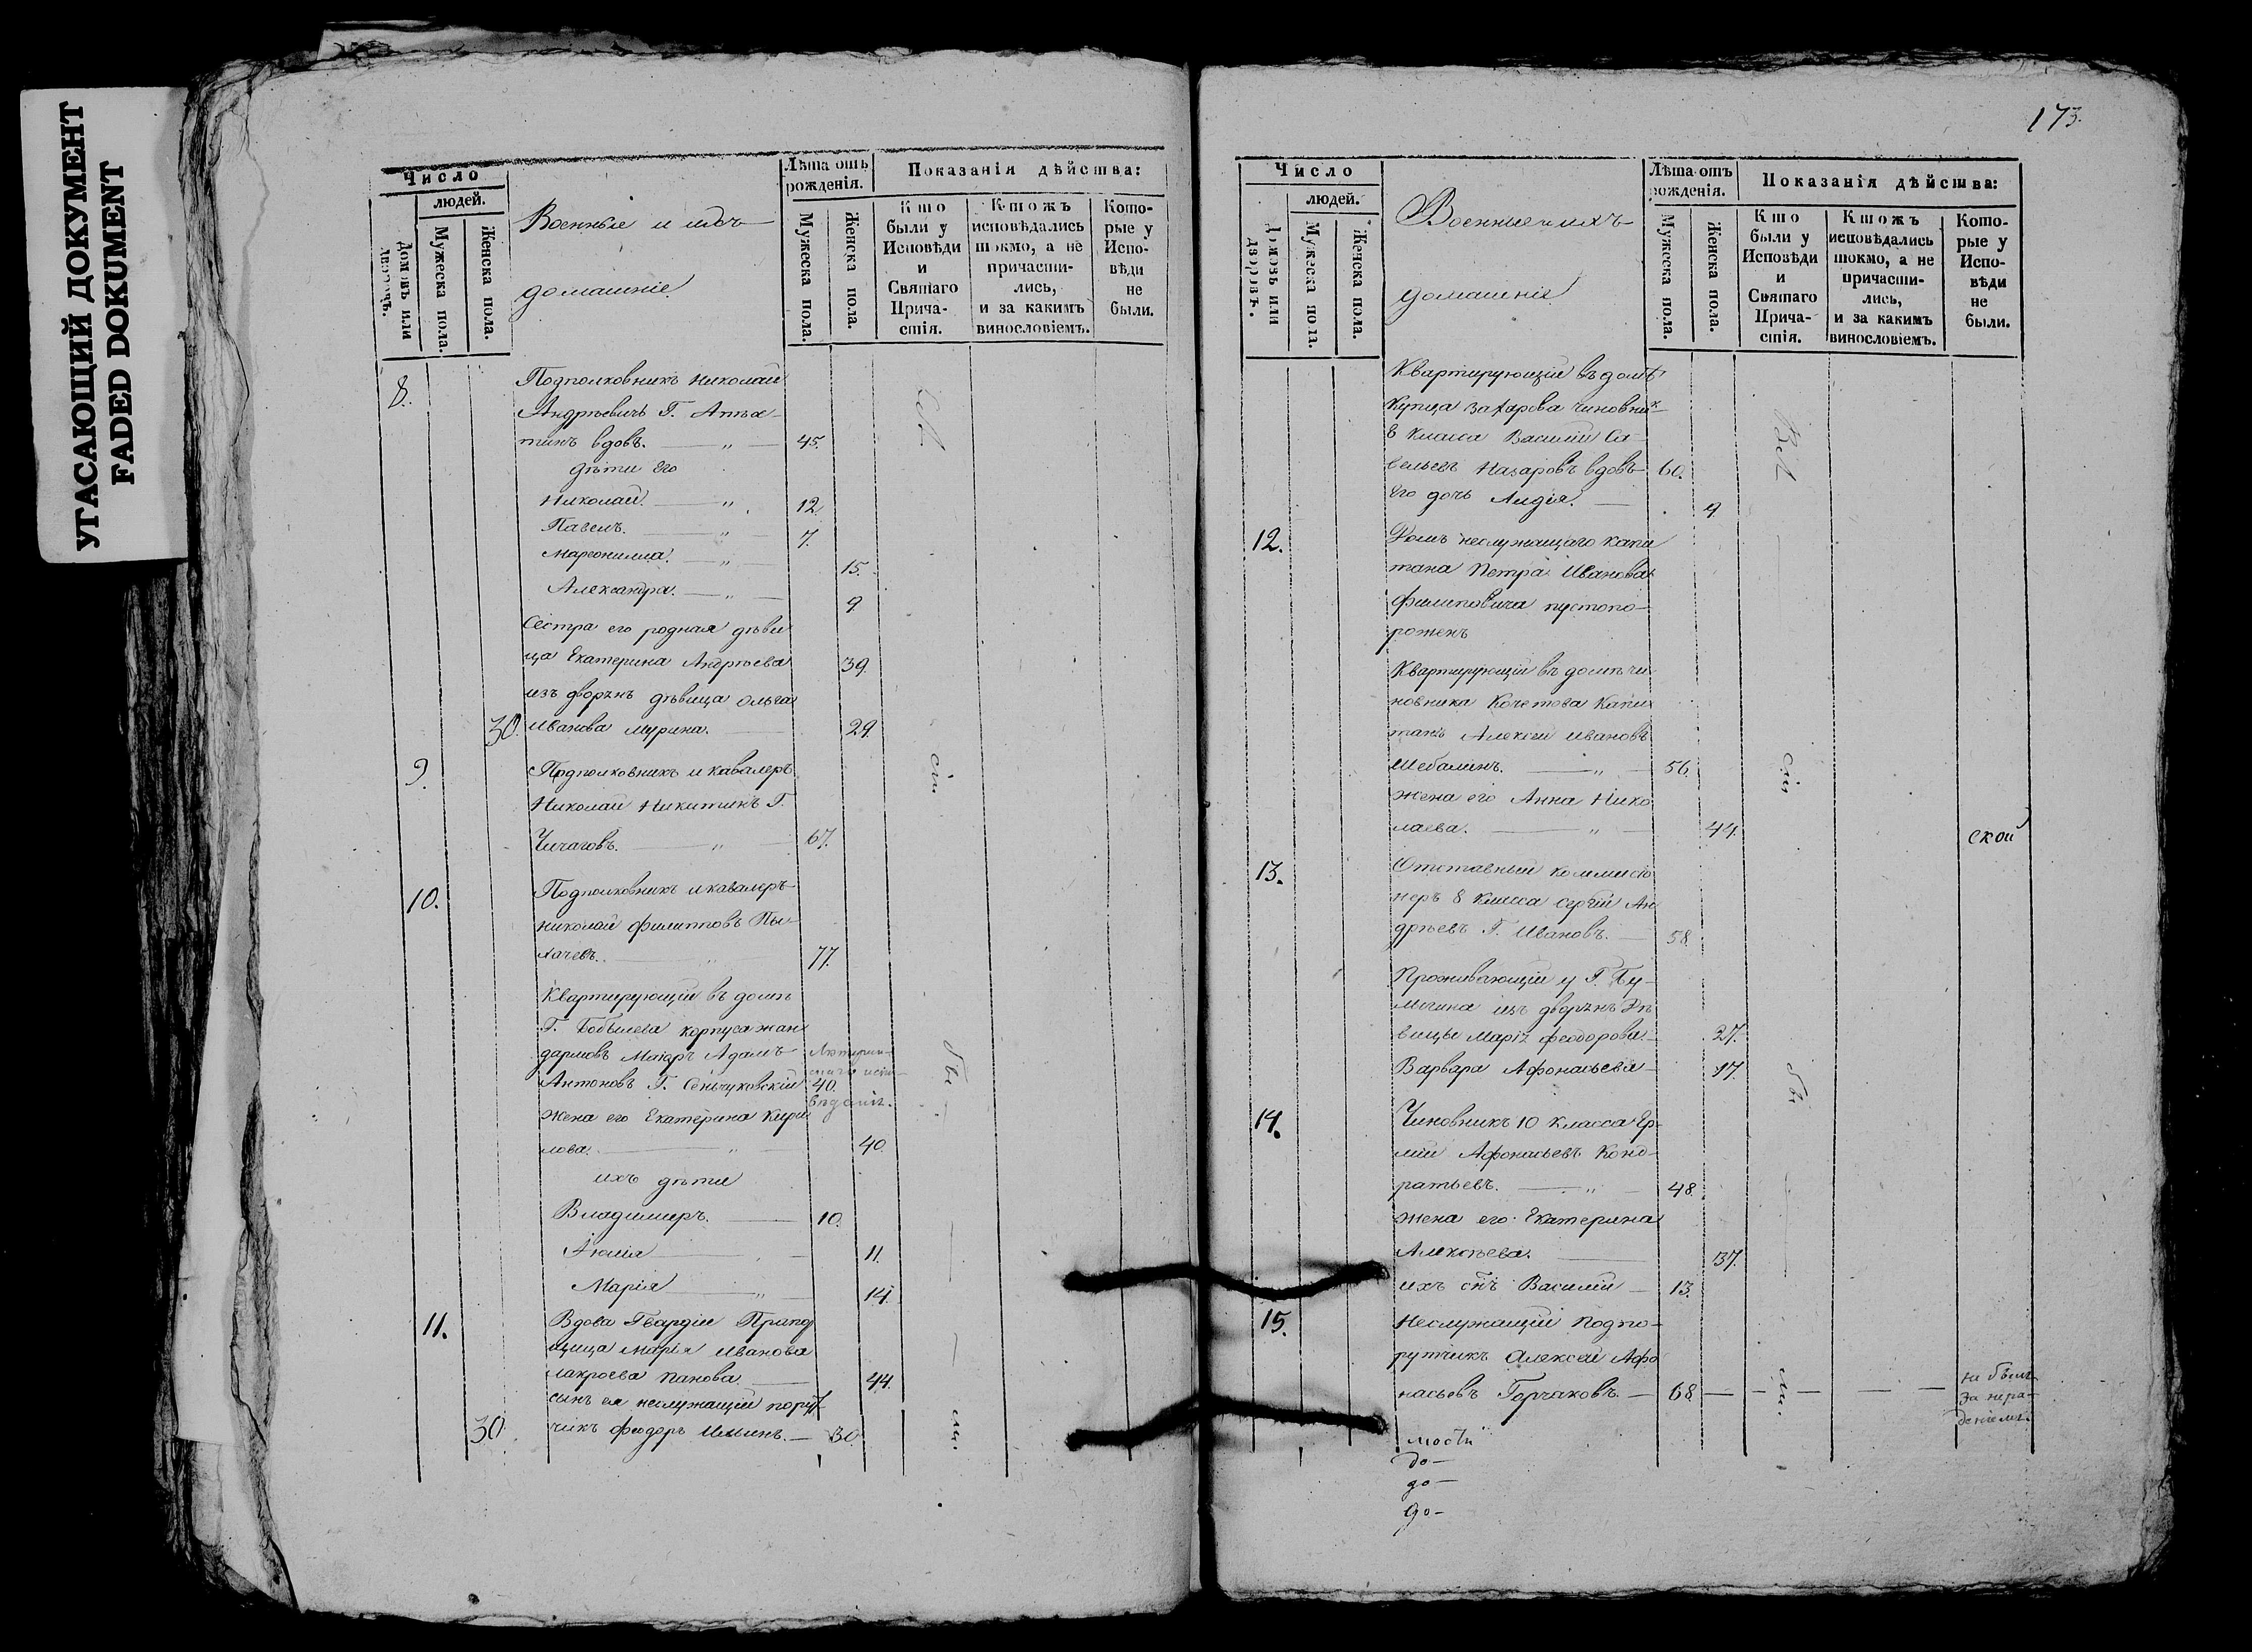 УГАСАЮЩИЙ ДОКУМЕНТ
FADED DOKUMENT
Число
людей.
Домовъ или дворовъ.
Мужеска пола.
Женска пола.
Военные и ихъ
домашніе
Лѣта отъ рожденія.
Мужеска пола.
Женска пола.
Показанія дѣйства:
Кто были у Исповѣди и Святаго Причастія.
Ктожъ исповѣдались токмо, а не причастились, и за какимъ винословіемъ.
Которые у Исповѣди не были.
8. Подполковникъ Николай
Андрѣевичъ Г.
тинъ вдовъ. — „ — 45.
дѣти его
Николай. — „ 12
Павелъ. — „ — 7.
Маргонилла. — „ — 15.
Александра. — „ — 9
Сестра его родная дѣви
ца Екатерина Андрѣева 39.
изъ дворянъ дѣвица Ольга
30. Иванова Мурина. — 29.
9. Подполковникъ и кавалеръ
Николай Никитинъ Г.
Чичаговъ. — „ — 67.
сіи.
10. Подполковникъ и кавалеръ
Николай Филипповъ Пы-
хачевъ. — „ 77.
Квартирующій въ домѣ
Г. Бобылева корпуса жан
дармовъ Маіоръ Адамъ
Антоновъ Г. Сеньчуковскій 40.
жена его Екатерина Кири
лова. — „ — 40.
ихъ дѣти
Владимиръ. — 10.
Юлія — 11.
Марія — „ — 14.
11. Вдова Гвардіи Прапор
щица Марія Иванова
Панова. — 44.
сынъ ея неслужащій пору
30. чикъ Феодоръ Ильинъ. — 30.
173.
Число
людей.
Домовъ или дворовъ.
Мужеска пола.
Женска пола.
Военные и ихъ
домашніе
Лѣта отъ рожденія.
Мужеска пола.
Женска пола.
Показанія дѣйства:
Кто были у Исповѣди и Святаго Причастія.
Ктожъ исповѣдались токмо, а не причастились, и за какимъ винословіемъ.
Которые у Исповѣди не были.
Квартирующій въ домѣ
Купца Захарова чиновник
8 класса Василій Са-
вельевъ Назаровъ вдовъ 60.
Его дочь Лидія. — 9.
Всѣ
12. Домъ неслужащаго капи
тана Петра Иванова
Филиповича пустопо-
рожень
Квартирующій въ домѣ чи
новника Кочетова Капи
танъ Алексей Ивановъ
Шебалинъ. — „ — 56.
сіи
жена его Анна Нико
лаева. — „ — 44.
ской
13. Отставный коммисіо
неръ 8 класса Сергій Ан
дрѣевъ Г. Ивановъ. — 58.
Проживающіи у Г.
изъ дворянъ дѣ
вицы Марія Феодорова — 27.
Варвара Афонасьева — 17.
14. Чиновникъ 10 класса Ер-
мій Афонасьевъ Конд-
ратьевъ. — „ — 48.
жена его Екатерина
Алексѣева. — 37.
ихъ сынъ Василій — 13.
15. Неслужащій Подпо-
рутчикъ Алексѣй Афо
насьевъ Горчаковъ. — 68. — — — — —
не былъ
за нера-
деніемъ.
мости
до-
до-
до-